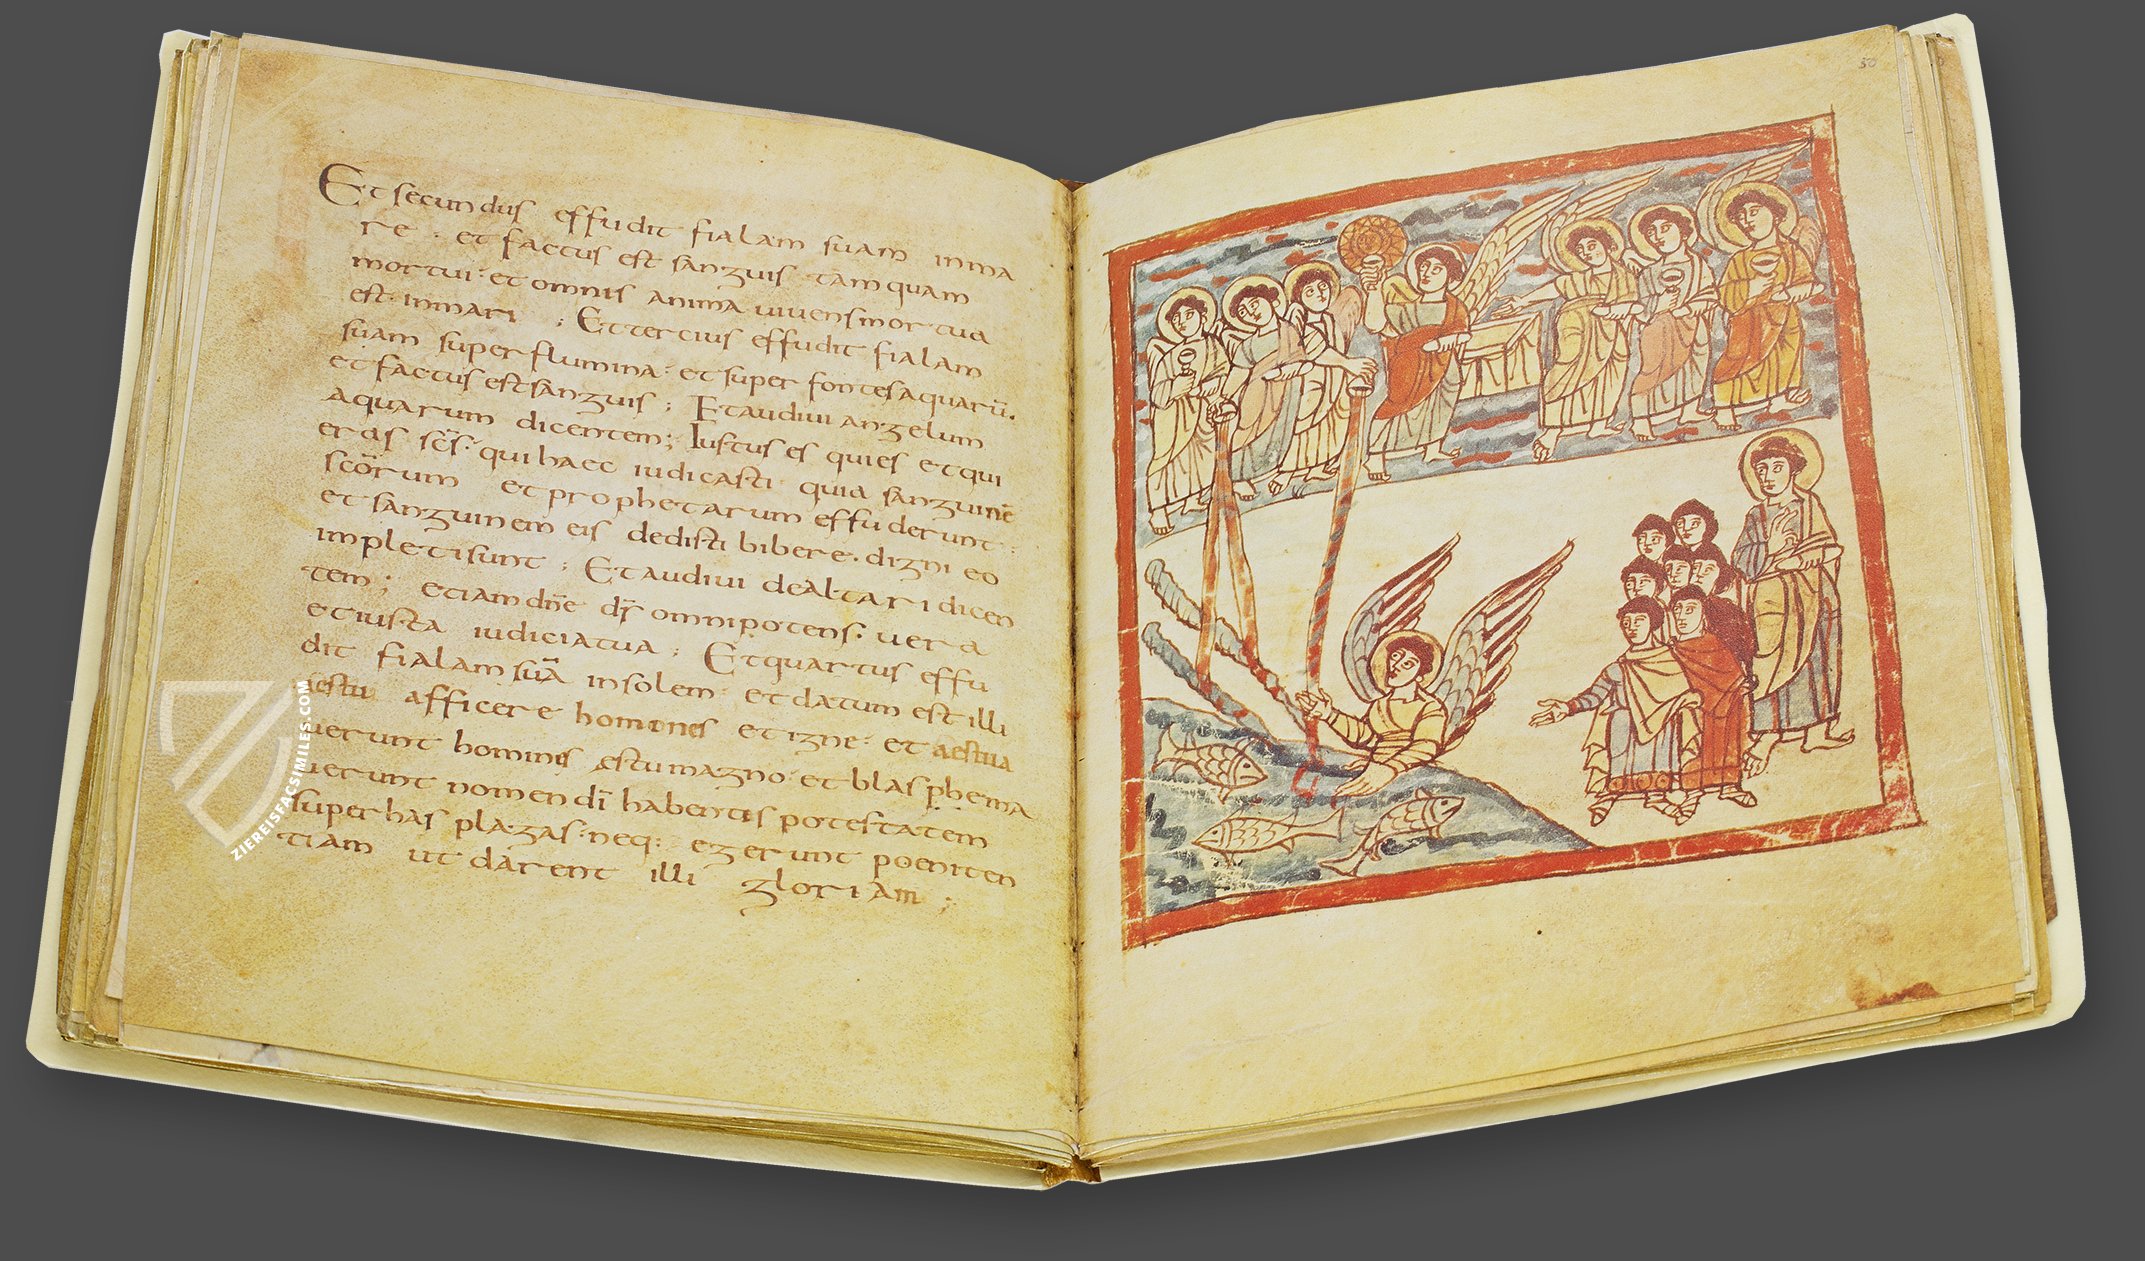 Et secundus effudit fialam suam inma
re · et factus est sanguis tamquam
mortui · et omnis anima uiuens mortua
est · inmari ; Et tercius effudit fialam
suam super flumina · et super fontes aquarū ·
et factus est sanguis ; Et audiui angelum
aquarum dicentem ; Iustus es qui es et qui
eras sc̄s · qui haec iudicasti quia sanguinē
scōrum et prophetarum effuderunt ·
et sanguinem eis dedisti bibere · digni eo
impleti sunt ; Et audiui de altari dicen
tem ; etiam dn̄e dr̄ omnipotens · uera
et iusta iudicia tua ; Et quartus effu
dit fialam suā in solem · et datum est illi
aestu afficere homones et igne · et aestua
uerunt homines ęstu magno · et blasphema
uerunt nomen dī habentes potestatem
super has plagas · neq: egerunt poeniten
tiam ut darent illi gloriam ;
50
ZIEREISFACSIMILES.COM